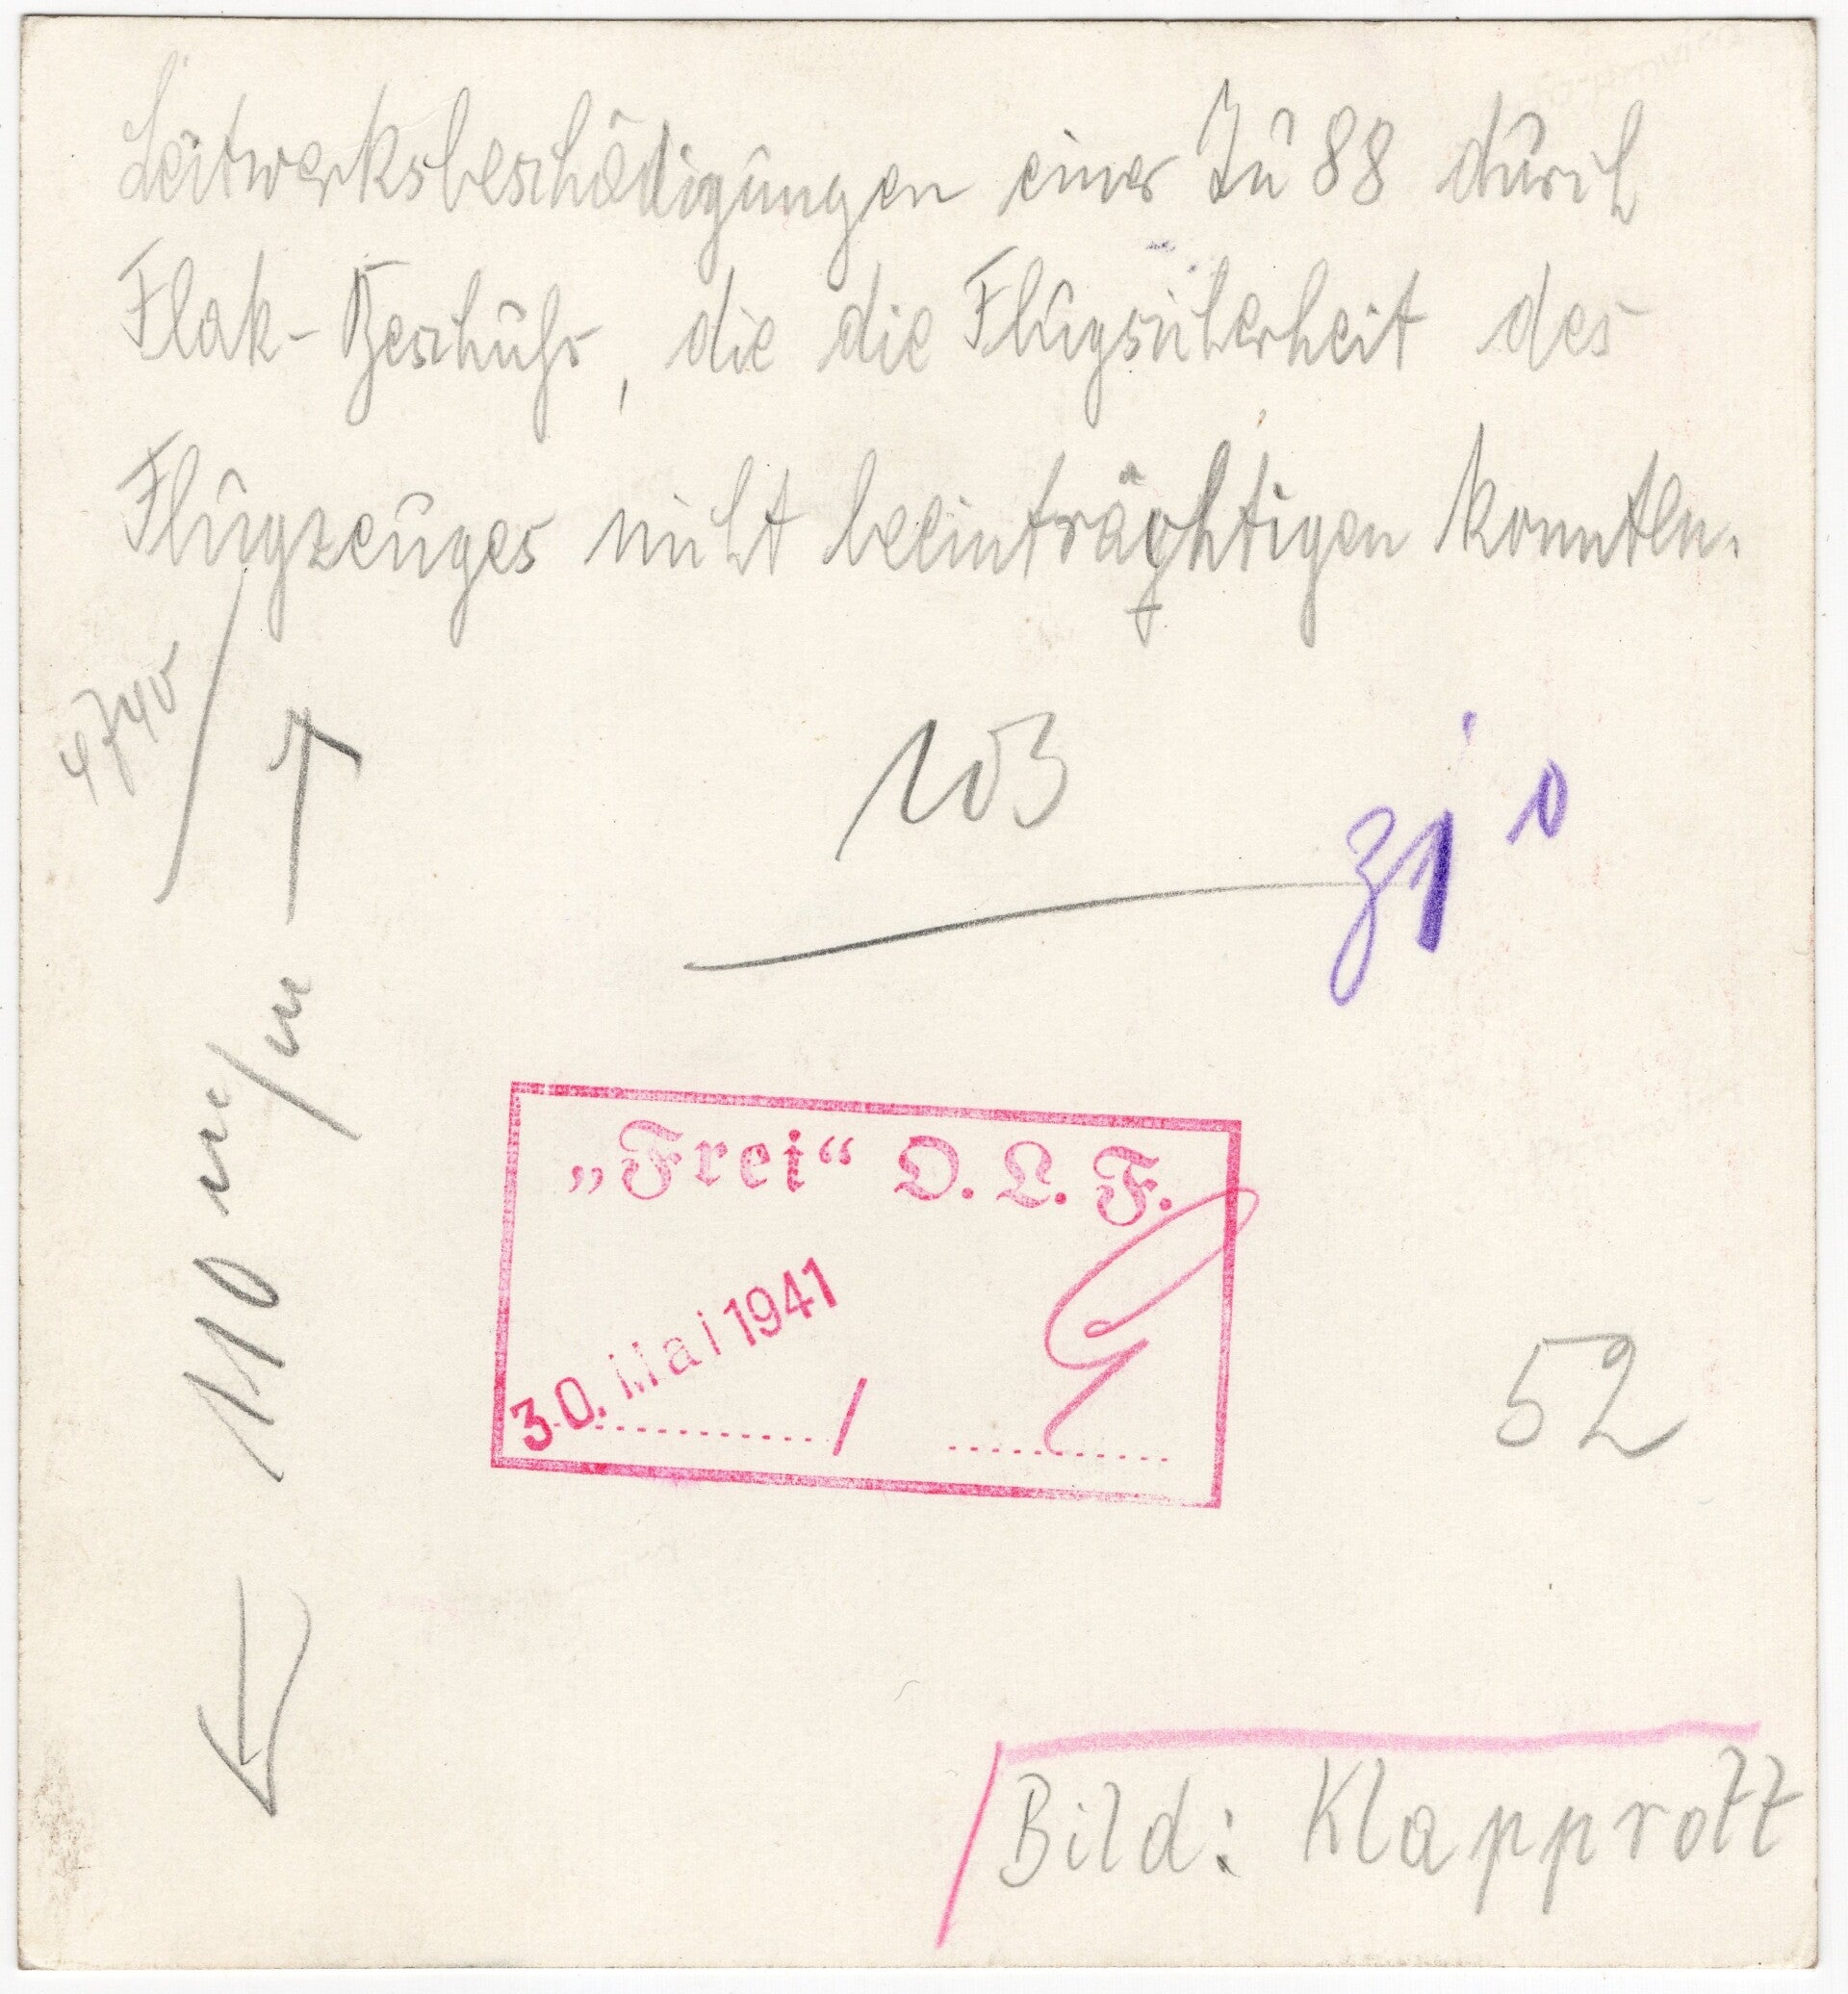 Leitwerksbeschädigungen einer Ju 88 durch
Flak-Beschuss, die die Flugsicherheit des
Flugzeuges nicht beeinträchtigen konnten.
103
110 m/m
„Frei“ O. L. F.
30. Mai 1941 /
52
Bild: Klapprott